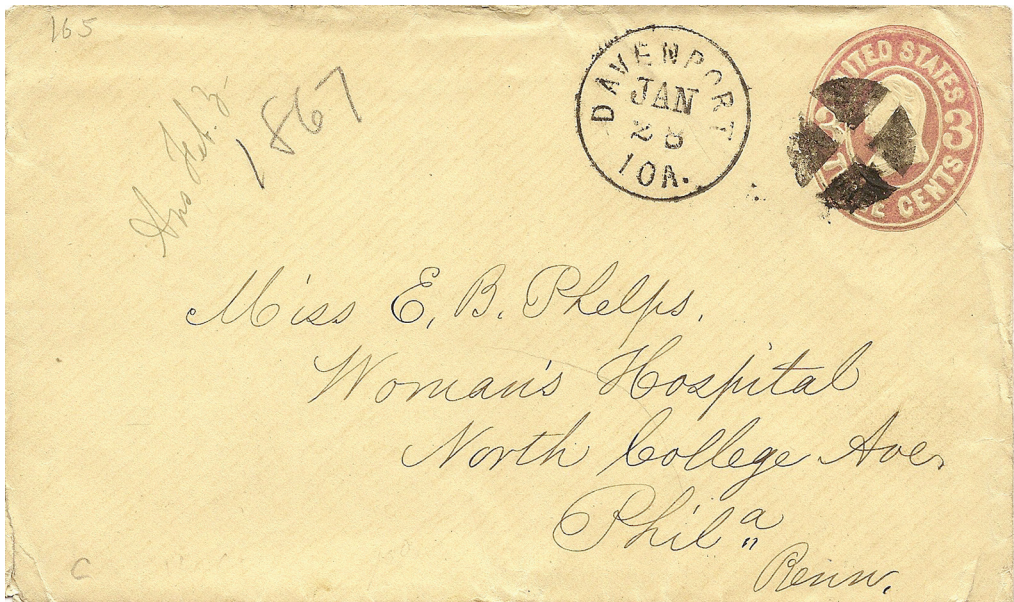 165
Ans Feb. 3
1867
DAVENPORT
JAN
28
IOA.
UNITED STATES
3
CENTS
Miss E. B. Phelps.
Woman's Hospital
North College Ave.
Phila
Penn.
C